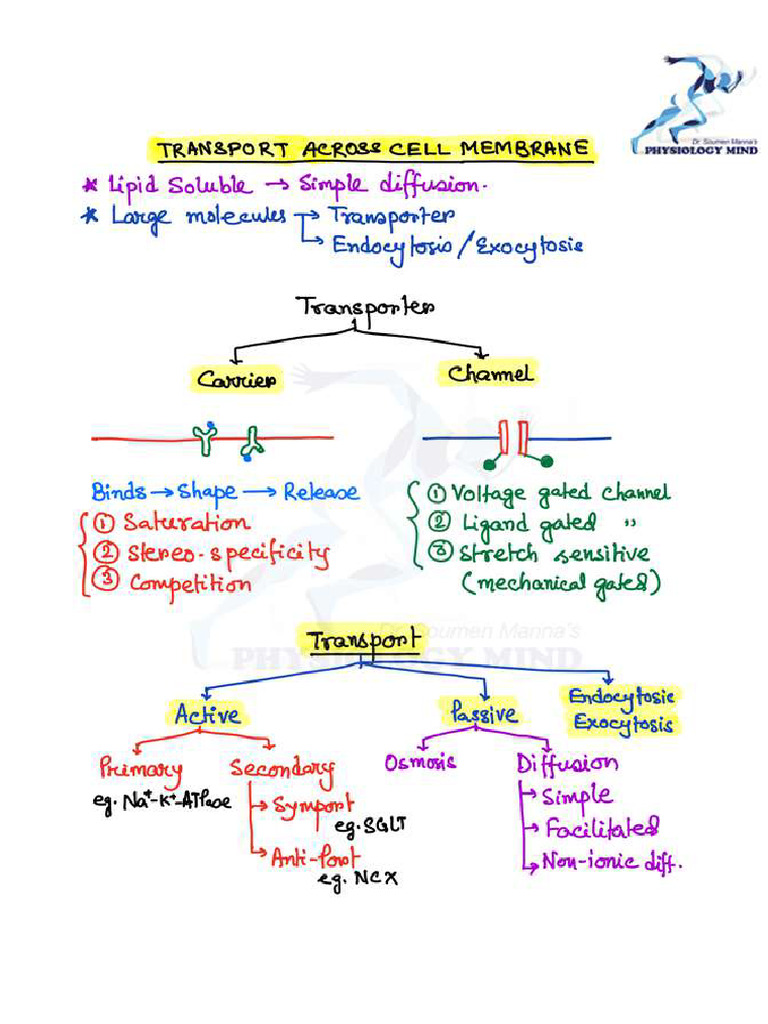 Dr. Soumen Manna's
PHYSIOLOGY MIND
TRANSPORT ACROSS CELL MEMBRANE
* Lipid Soluble → Simple diffusion.
* Large molecules → Transporter
↳ Endocytosis / Exocytosis
Transporter
Carrier
Channel
Binds → Shape → Release
① Saturation
② Stereo-specificity
③ Competition
① Voltage gated channel
② Ligand gated "
③ Stretch sensitive
(mechanical gated)
Dr. Soumen Manna's
PHYSIOLOGY MIND
Transport
Active
Passive
Endocytosis
Exocytosis
Primary
eg. Na⁺-K⁺-ATPase
Secondary
→ Symport
eg. SGLT
→ Anti-Port
eg. NCX
Osmosis
Diffusion
→ Simple
→ Facilitated
→ Non-ionic diff.